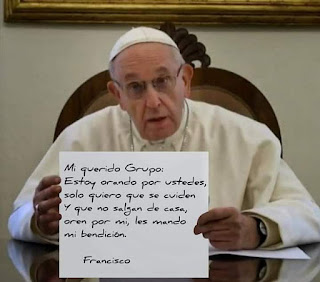 Mi querido Grupo:
Estoy orando por ustedes,
solo quiero que se cuiden
Y que no salgan de casa,
oren por mi, les mando
mi bendición.
Francisco